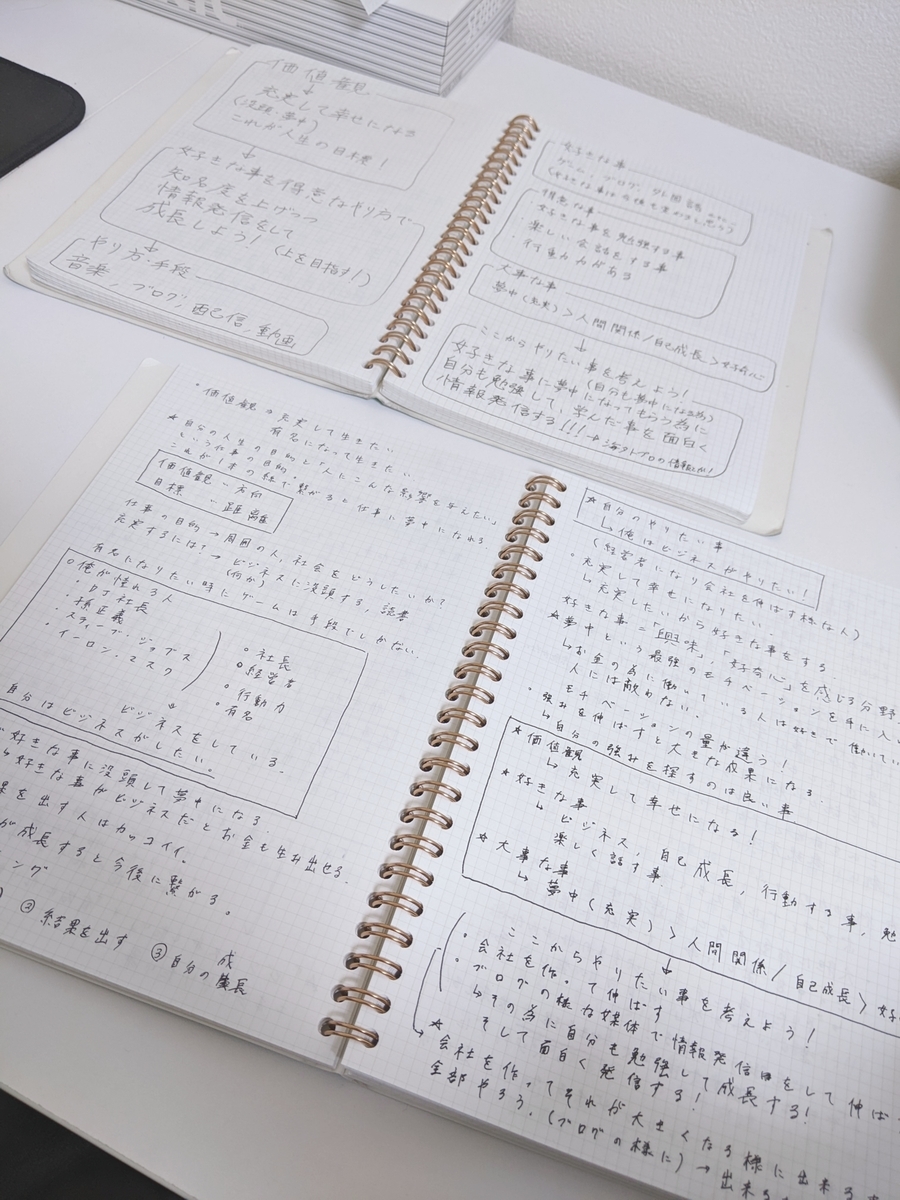 価値観
↓
充実して幸せになる
(没頭・夢中)
これが人生の目標!
↓
好きな事を得意なやり方で
知名度を上げつつ
情報発信をして
成長しよう! (上を目指す!)
↓
やり方・手段
音楽、ブログ、配信、動画
好きな事
ゲーム、ブログ、
得意な事
・好きな事を勉強する事
・楽しい会話をする事
・行動力がある
大事な事
夢中(充実)>人間関係/自己成長>
↓
ここからやりたい事を考えよう!
好きな事に夢中になってもらう為に(自分も夢中になる為)
自分も勉強して、学んだ事を面白く
情報発信する!!!
・価値観→充実して生きたい
有名になって生きたい
★自分の人生の目的と「人にこんな影響を与えたい」
という仕事の目的。
これが1本の線で繋がると仕事に夢中になれる
価値観=方向
目標=距離
仕事の目的→周囲の人、社会をどうしたいか?
充実するには?→ビジネスに没頭する、読書
(何か)
有名になりたい時にゲームは手段でしかない。
○俺が憧れる人
・DJ社長
・孫正義
・スティーブ・ジョブス
・イーロン・マスク
○社長
○経営者
○行動力
○有名
↓
ビジネスをしている。
自分はビジネスがしたい。
好きな事に没頭して夢中になる。
好きな事がビジネスだとお金も生み出せる。
果を出す人はカッコイイ。
が成長すると今後に繋がる。
ング
②結果を出す ③自分の成長
★自分のやりたい事
↳俺はビジネスがやりたい!
(経営者になり会社を伸ばす様な人)
・充実して幸せになりたい。
↳充実したいから好きな事をする。
好きな事=「興味」「好奇心」を感じる分野
★夢中という最強のモチベーションを手に入
↳お金の為に働いている人は好きで働いてい
人には敵わない。
モチベーションの量が違う!
・強みを伸ばすと大きな成果になる。
↳自分の強みを探すのは良い事
★価値観
↳充実して幸せになる!
★好きな事
↳ビジネス、自己成長、行動する事、勉
楽しく話す事
★大事な事
↳夢中(充実)>人間関係/自己成長>好
↓
ここからやりたい事を考えよう!
・会社を作って伸ばす
・ブログの様な媒体で情報発信をして伸ば
↳その為に自分も勉強して成長する!
そして面白く発信する!
★会社を作ってそれが大きくなる様に出来る
全部やろう。(ブログの様に)→出来る